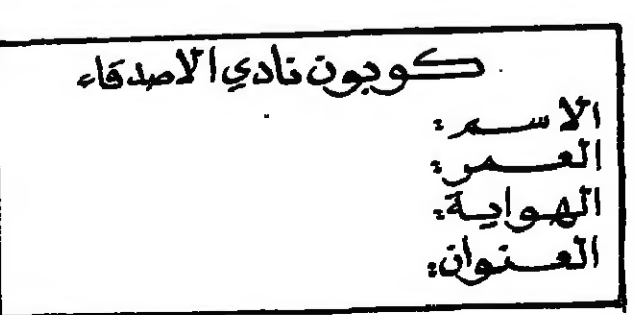 كوبون نادي الاصدقاء
الاسم:
العمر:
الهواية:
العنوان: